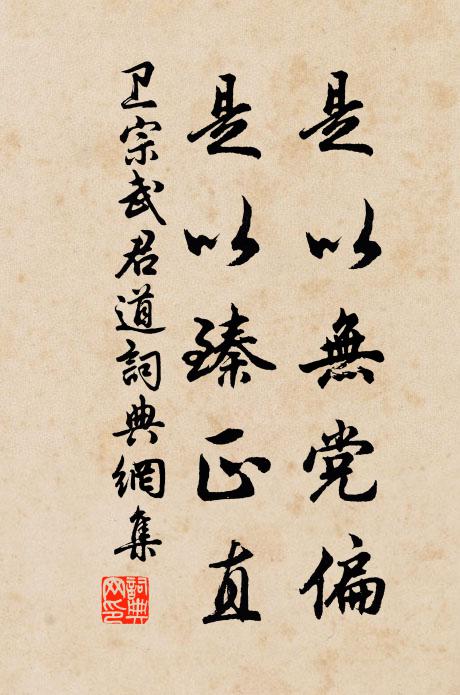 是以無党偏
是以臻正直
卫宗武君道詞典網集
詞典网印